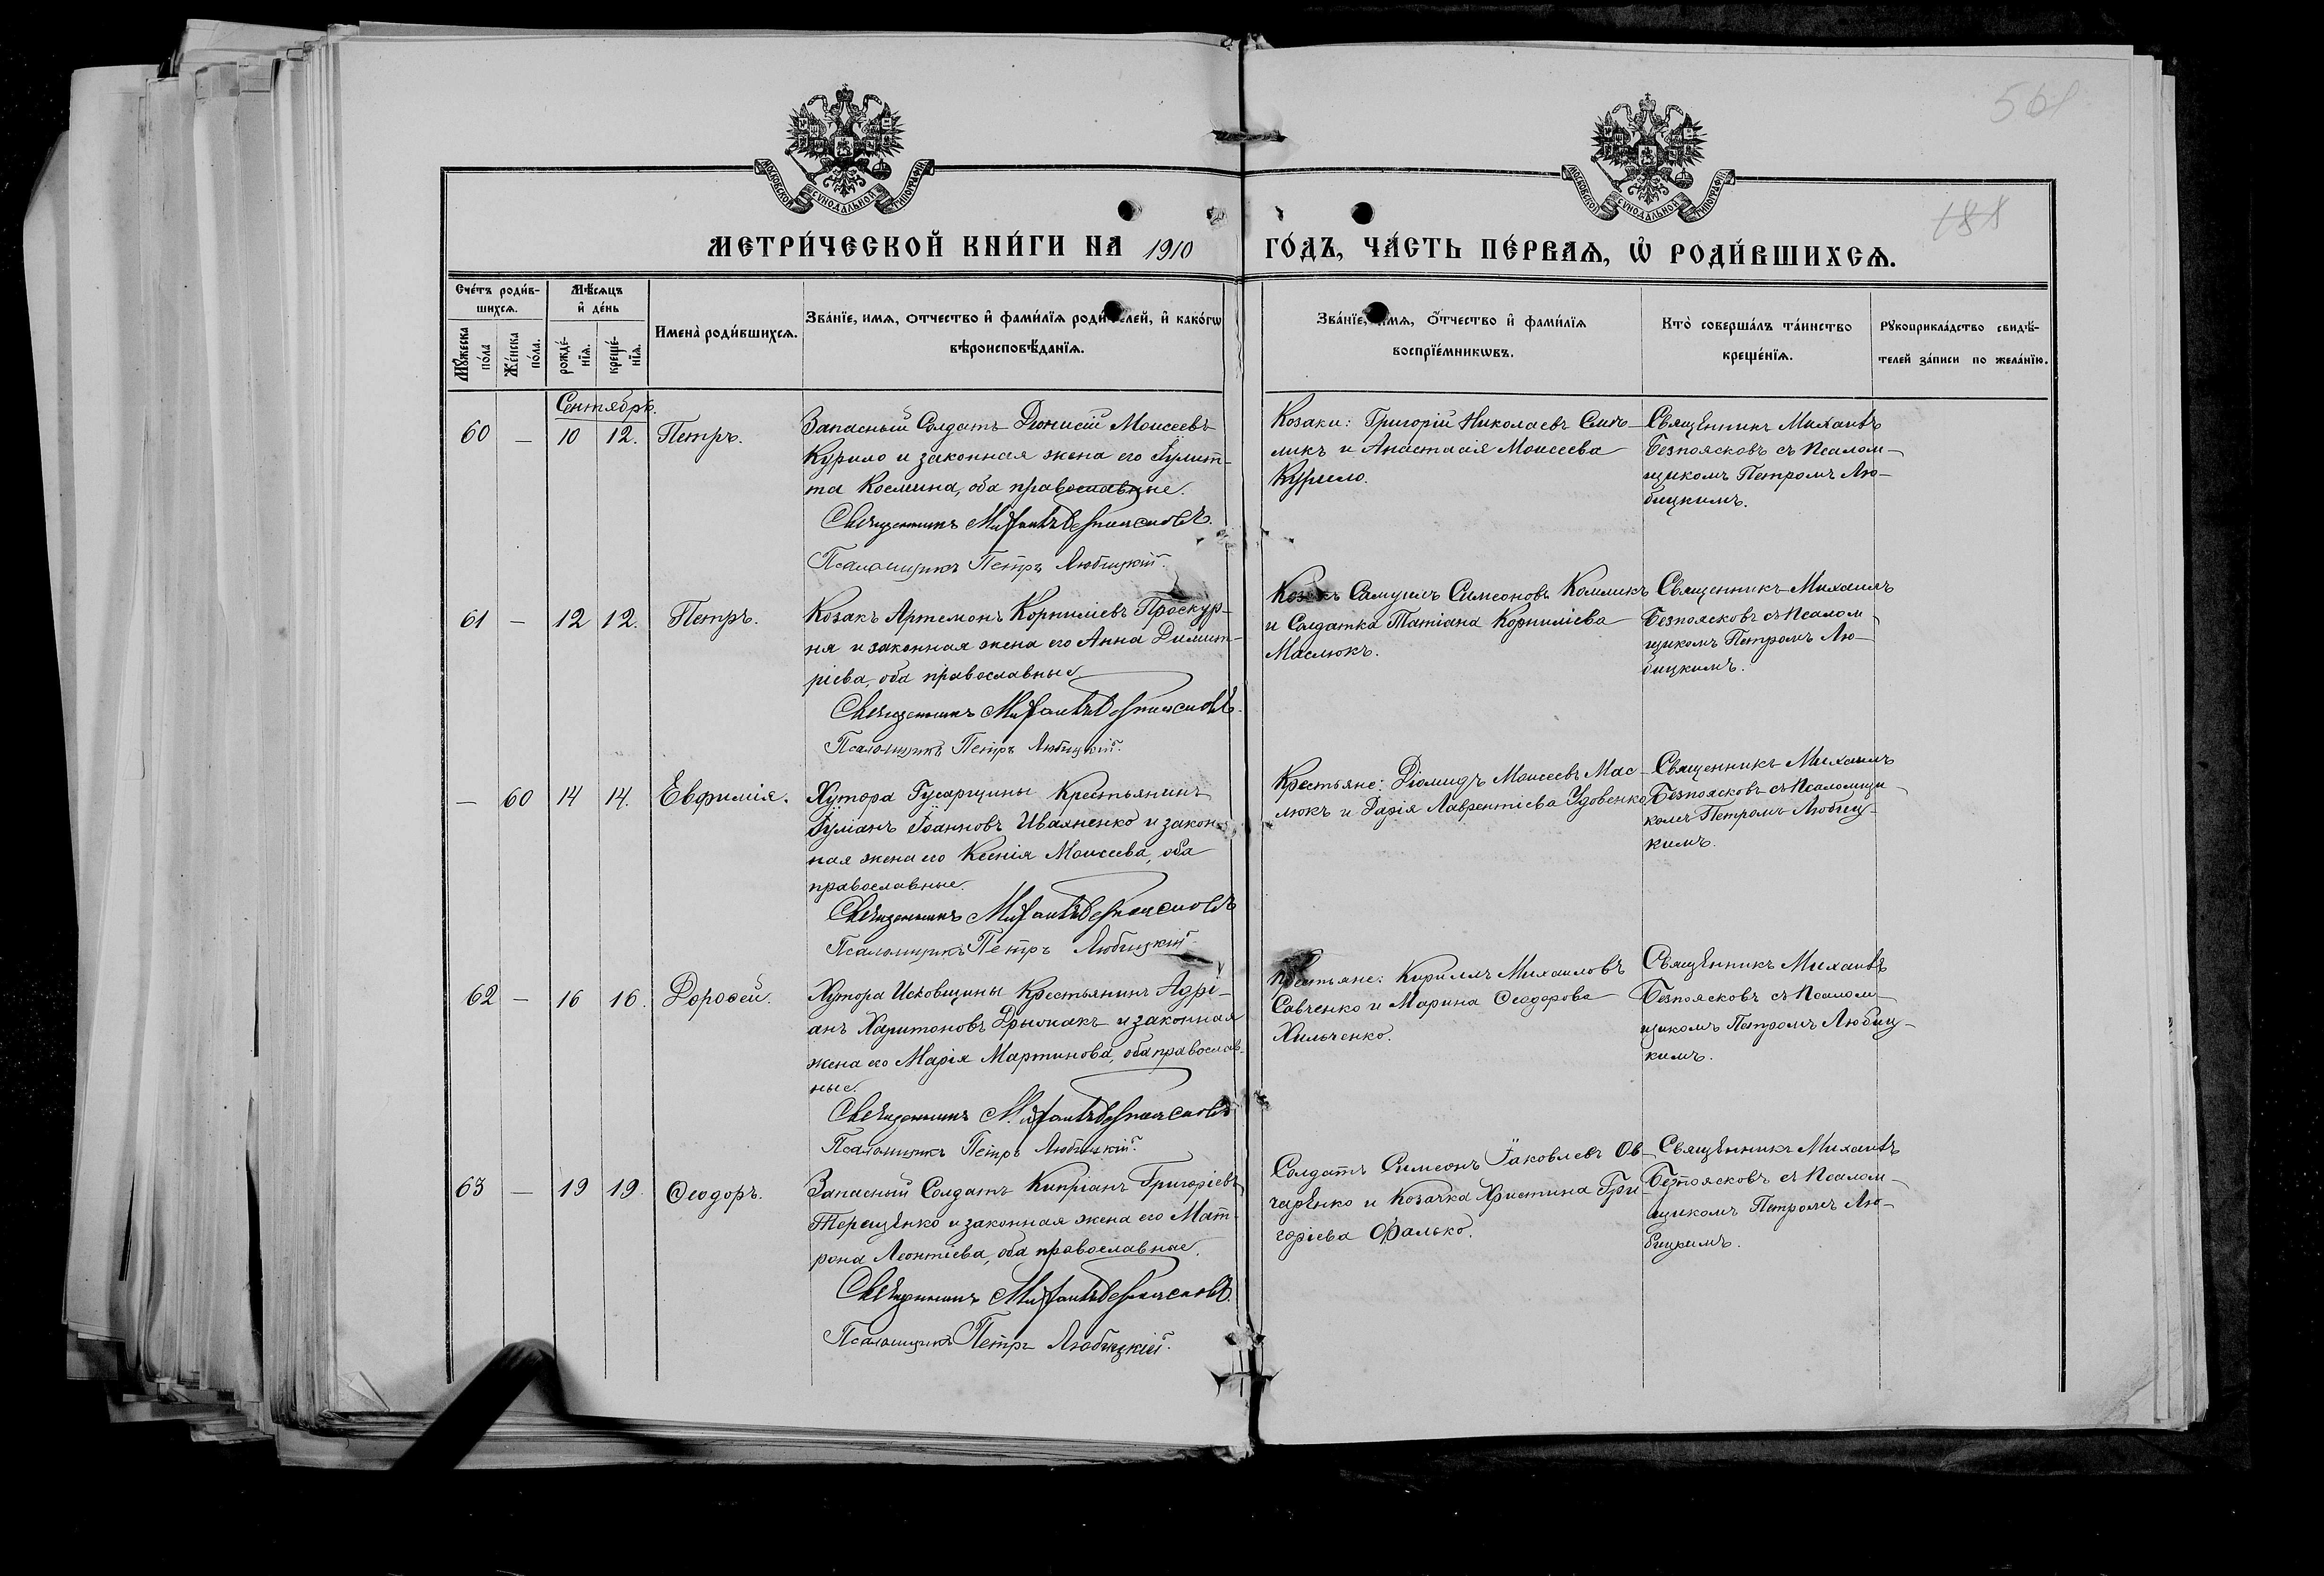 561
188
МОСКОВСКОЙ СѴНОДАЛЬНОЙ ТИПОГРАФІИ
МОСКОВСКОЙ СѴНОДАЛЬНОЙ ТИПОГРАФІИ
МЕТРИ́ЧЕСКОЙ КНИ́ГИ НА 1910 ГО́ДЪ, ЧА́СТЬ ПЕ́РВАѦ, Ѡ РОДИ́ВШИХСѦ.
Сче́тъ роди́в-
шихсѧ.
Мꙋ́жеска
по́ла
Же́нска
по́ла.
Мѣ́сѧцъ
и де́нь
рожде́-
нїѧ.
креще́-
нїѧ.
Имена̀ роди́вшихсѧ.
Зва́нїе, имѧ, отчество и фами́лїѧ роди́телей, и како́гѡ
вѣроисповѣ́данїѧ.
Зва́нїе, имѧ, о́тчество и фами́лїѧ
воспрїе́мникѡвъ.
Кто̀ соверша́лъ та́инство
креще́нїѧ.
Рꙋкоприкла́дство свидѣ́-
телей за́писи по жела́нїю.
Сентябрь.
60 — 10 12. Петръ.
Запасный Солдатъ Діонисій Моисеевъ
Курило и законная жена его Іулит-
та Космина, оба православные.
Священникъ Михаилъ Безпоясковъ.
Псаломщикъ Петръ Любицкій.
Козаки: Григорій Николаевъ
ликъ и Анастасія Моисеева
Курило.
Священникъ Михаилъ
Безпоясковъ съ Псалом-
щикомъ Петромъ Лю-
бицкимъ.
61 — 12 12. Петръ.
Козакъ Артемонъ Корниліевъ Проскур-
ня и законная жена его Анна Димит-
ріева, оба православные.
Священникъ Михаилъ Безпоясковъ.
Псаломщикъ Петръ Любицкій.
Козакъ Самуилъ Симеоновъ Комликъ
и Солдатка Татіана Корниліева
Маслюкъ.
Священникъ Михаилъ
Безпоясковъ съ Псалом-
щикомъ Петромъ Лю-
бицкимъ.
— 60 14 14. Евфимія.
Хутора Гусарщины Крестьянинъ
Іуліанъ Іоанновъ Иваненко и закон-
ная жена его Ксенія Моисеева, оба
православные.
Священникъ Михаилъ Безпоясковъ
Псаломщикъ Петръ Любицкій.
Крестьяне: Діомидъ Моисеевъ Мас-
люкъ и Дарія Лаврентіева Удовенко
Священникъ Михаилъ
Безпоясковъ съ Псаломщи-
комъ Петромъ Любиц-
кимъ.
62 — 16 16. Дороѳей.
Хутора Исковщины Крестьянинъ Адрі-
анъ Харитоновъ и законная
жена его Марія Мартинова, оба православ-
ные.
Священникъ Михаилъ Безпоясковъ
Псаломщикъ Петръ Любицкій.
Крестьяне: Кириллъ Михаиловъ
Савченко и Марина Ѳеодорова
Хильченко.
Священникъ Михаилъ
Безпоясковъ съ Псалом-
щикомъ Петромъ Любиц-
кимъ.
63 — 19 19. Ѳеодоръ.
Запасный Солдатъ Кипріанъ Григоріевъ
Терещенко и законная жена его Мат-
рона Леонтіева, оба православные.
Священникъ Михаилъ Безпоясковъ.
Псаломщикъ Петръ Любицкій.
Солдатъ Симеонъ Іаковлевъ Ов-
чаренко и Козачка Христина Гри-
горіева Фалько.
Священникъ Михаилъ
Безпоясковъ съ Псалом-
щикомъ Петромъ Лю-
бицкимъ.